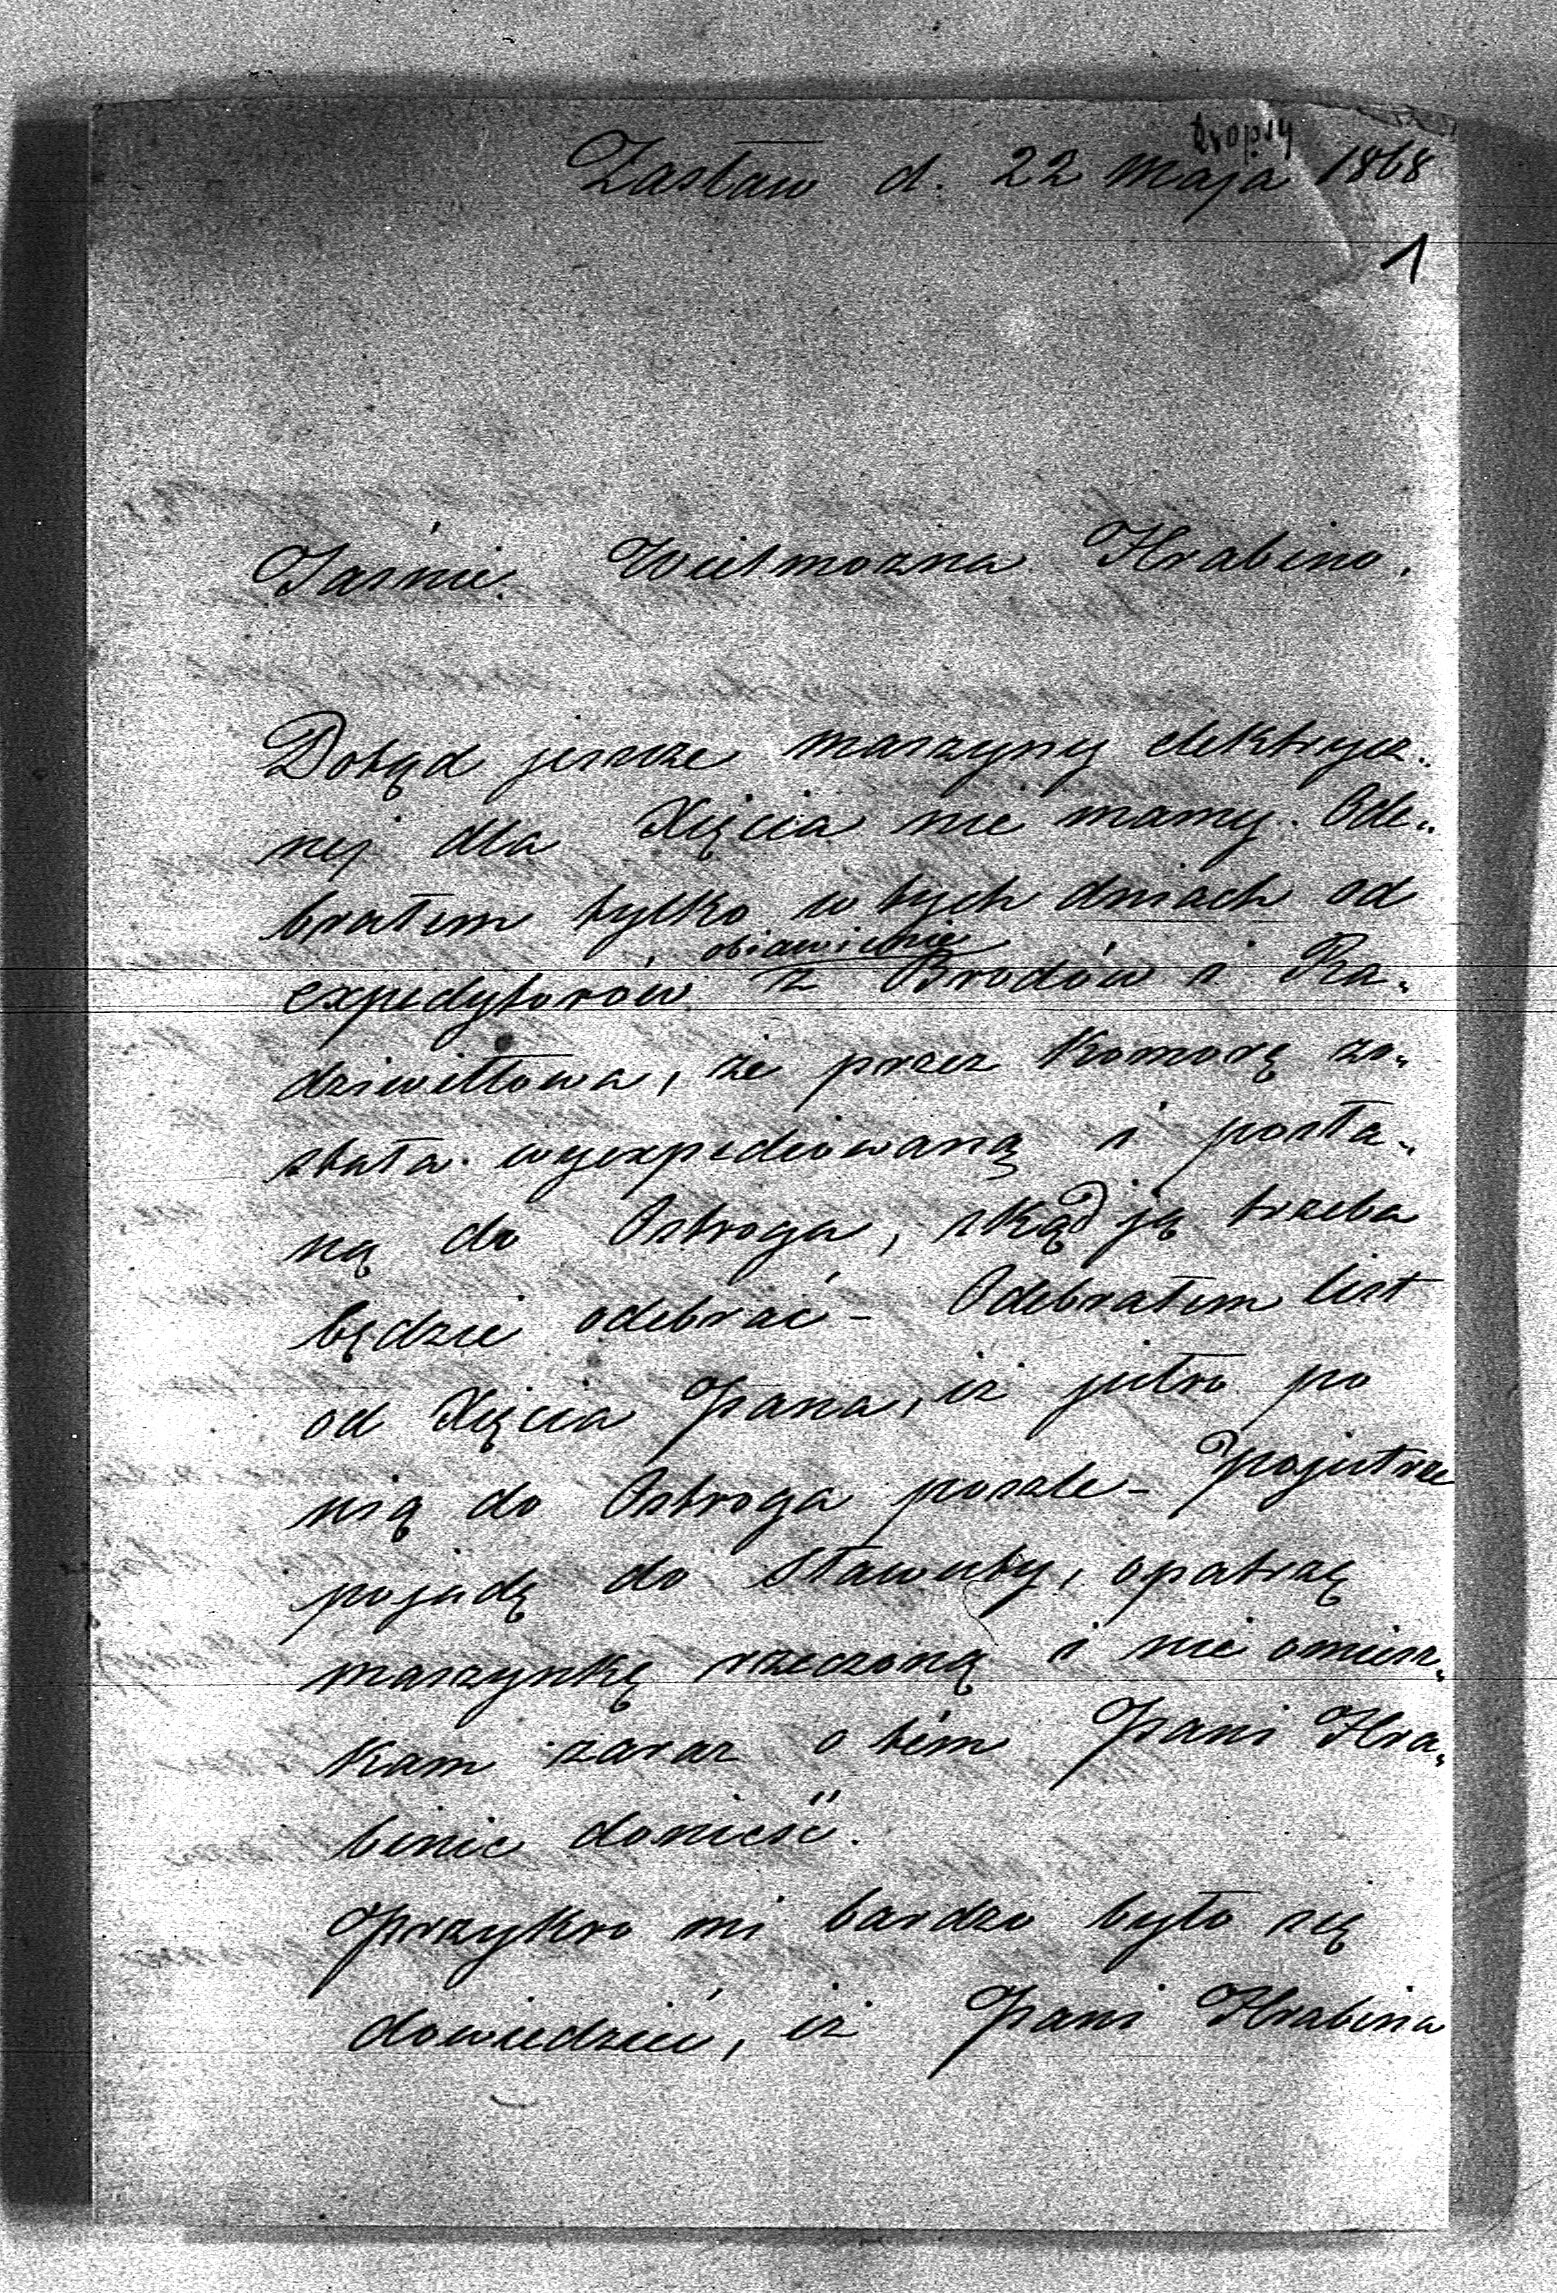 Zasław d. 22 maja 1868
1
Jaśnie Wielmożna Hrabino.
Dotąd jeszcze maszyny elektrycz„
nej dla Xięcia nie mamy. Ode„
brałem tylko w tych dniach od
obiawienie
expedytorów z Brodów i Ra„
dziwiłłowa, że przez Komorę zo„
stała wyexpediowaną i posła„
ną do Ostroga, skąd ją trzeba
będzie odebrać – Odebrałem list
od Xięcia Pana, iż jutro po
nią do Ostroga poszle – Pojutrze
pojadę do Sławuty, opatrzę
maszynkę rzeczoną i nie omiesz„
kam zaraz o tém Pani Hra„
binie donieść.
Przykro mi bardzo było się
dowiedzieć, iż Pani Hrabina